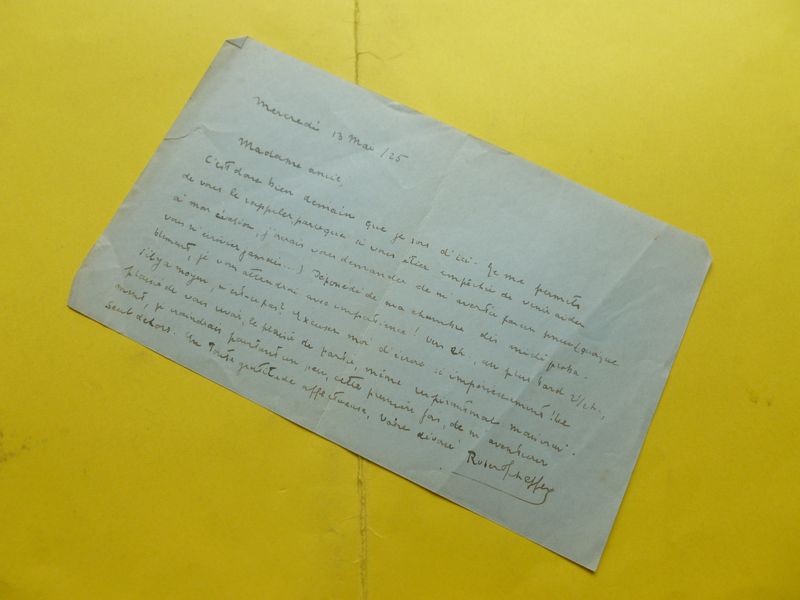 Mercredi 13 Mai /25
Madame amie,
C'est donc bien demain que je sors d'ici. Je me permets
de vous le rappeler parceque si vous étiez empêchée de venir aider
à mon évasion, j'aurais vous demander de m'avertir par un pneu (quoique
vous n'arriviez jamais...) Dépossédé de ma chambre dès midi proba-
blement, je vous attendrai avec impatience! Vers 2h, au plus tard 2h 1/2,
s'il y a moyen, n'est-ce pas? Excusez moi d'écrire si impérieusement! Le
plaisir de vous revoir, le plaisir de partir, même
mais, je voudrais pourtant un peu, cette première fois, de m'aventurer
seul dehors. En toute gratitude affectueuse, votre dévoué